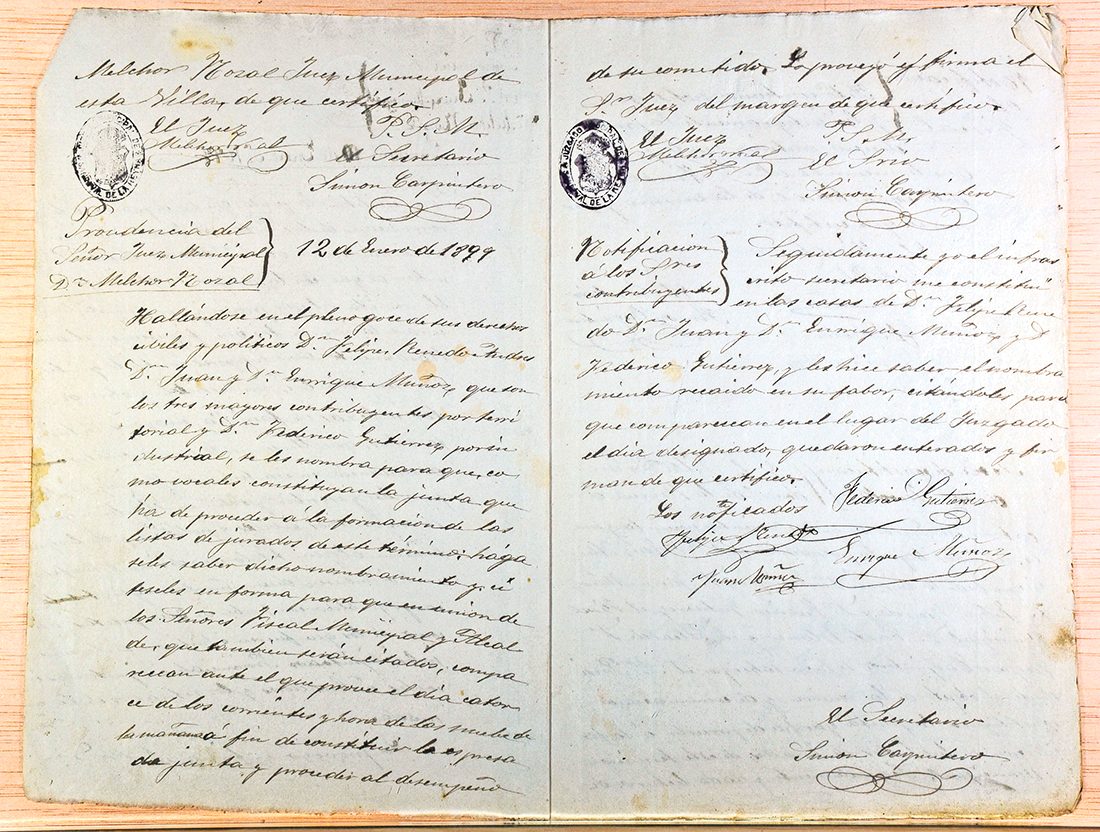 Melchor Nozal Juez Municipal de
esta Villa, de que certifico.
El Juez
Melchor Nozal
P. S. M.
El Secretario
Simon Carpintero
Providencia del
Señor Juez Municipal
Dn. Melchor Nozal
12 de Enero de 1899
Hallándose en el pleno goce de sus derechos
civiles y politicos Dn. Felipe Renedo Andres
Dn. Juan y Dn. Enrrique Muñoz, que son
los tres mayores contribuyentes por terri
torial y Dn. Federico Gutierrez, por in
dustrial, se les nombra para que, co
mo vocales constituyan la junta que
ha de proceder á la formacion de las
listas de jurados de este término; haga
seles saber dicho nombramiento y cí
teseles en forma para que en union de
los Señores Fiscal Municipal y Alcal
de, que tambien serán citados, compa
rezcan ante el que provee el dia cator
ce de los corrientes y hora de las nuebe de
la mañana á fin de constituir la espresa
da junta y proceder al desempeño
de su cometido. Lo proveyó y firma el
Sr. Juez del margen de que certifico.
JUZGADO
El Juez
Melchor Nozal
P. S. M.
El Srio
Simon Carpintero
Notificacion
á los Sres
contribuyentes
Seguidamente yo el infras
crito secretario me constituí
en las casas de Dn. Felipe Rene
do Dn. Juan y Dn. Enrrique Muñoz y D.
Federico Gutierrez, y les hice saber el nombra
miento recaido en su fabor, citándoles para
que comparezcan en el lugar del Juzgado
el dia designado, quedaron enterados y fir
man de que certifico.
Los notificados
Federico Gutierrez
Felipe Renedo
Enrrique Muñoz
Juan Muñoz
El Secretario
Simon Carpintero